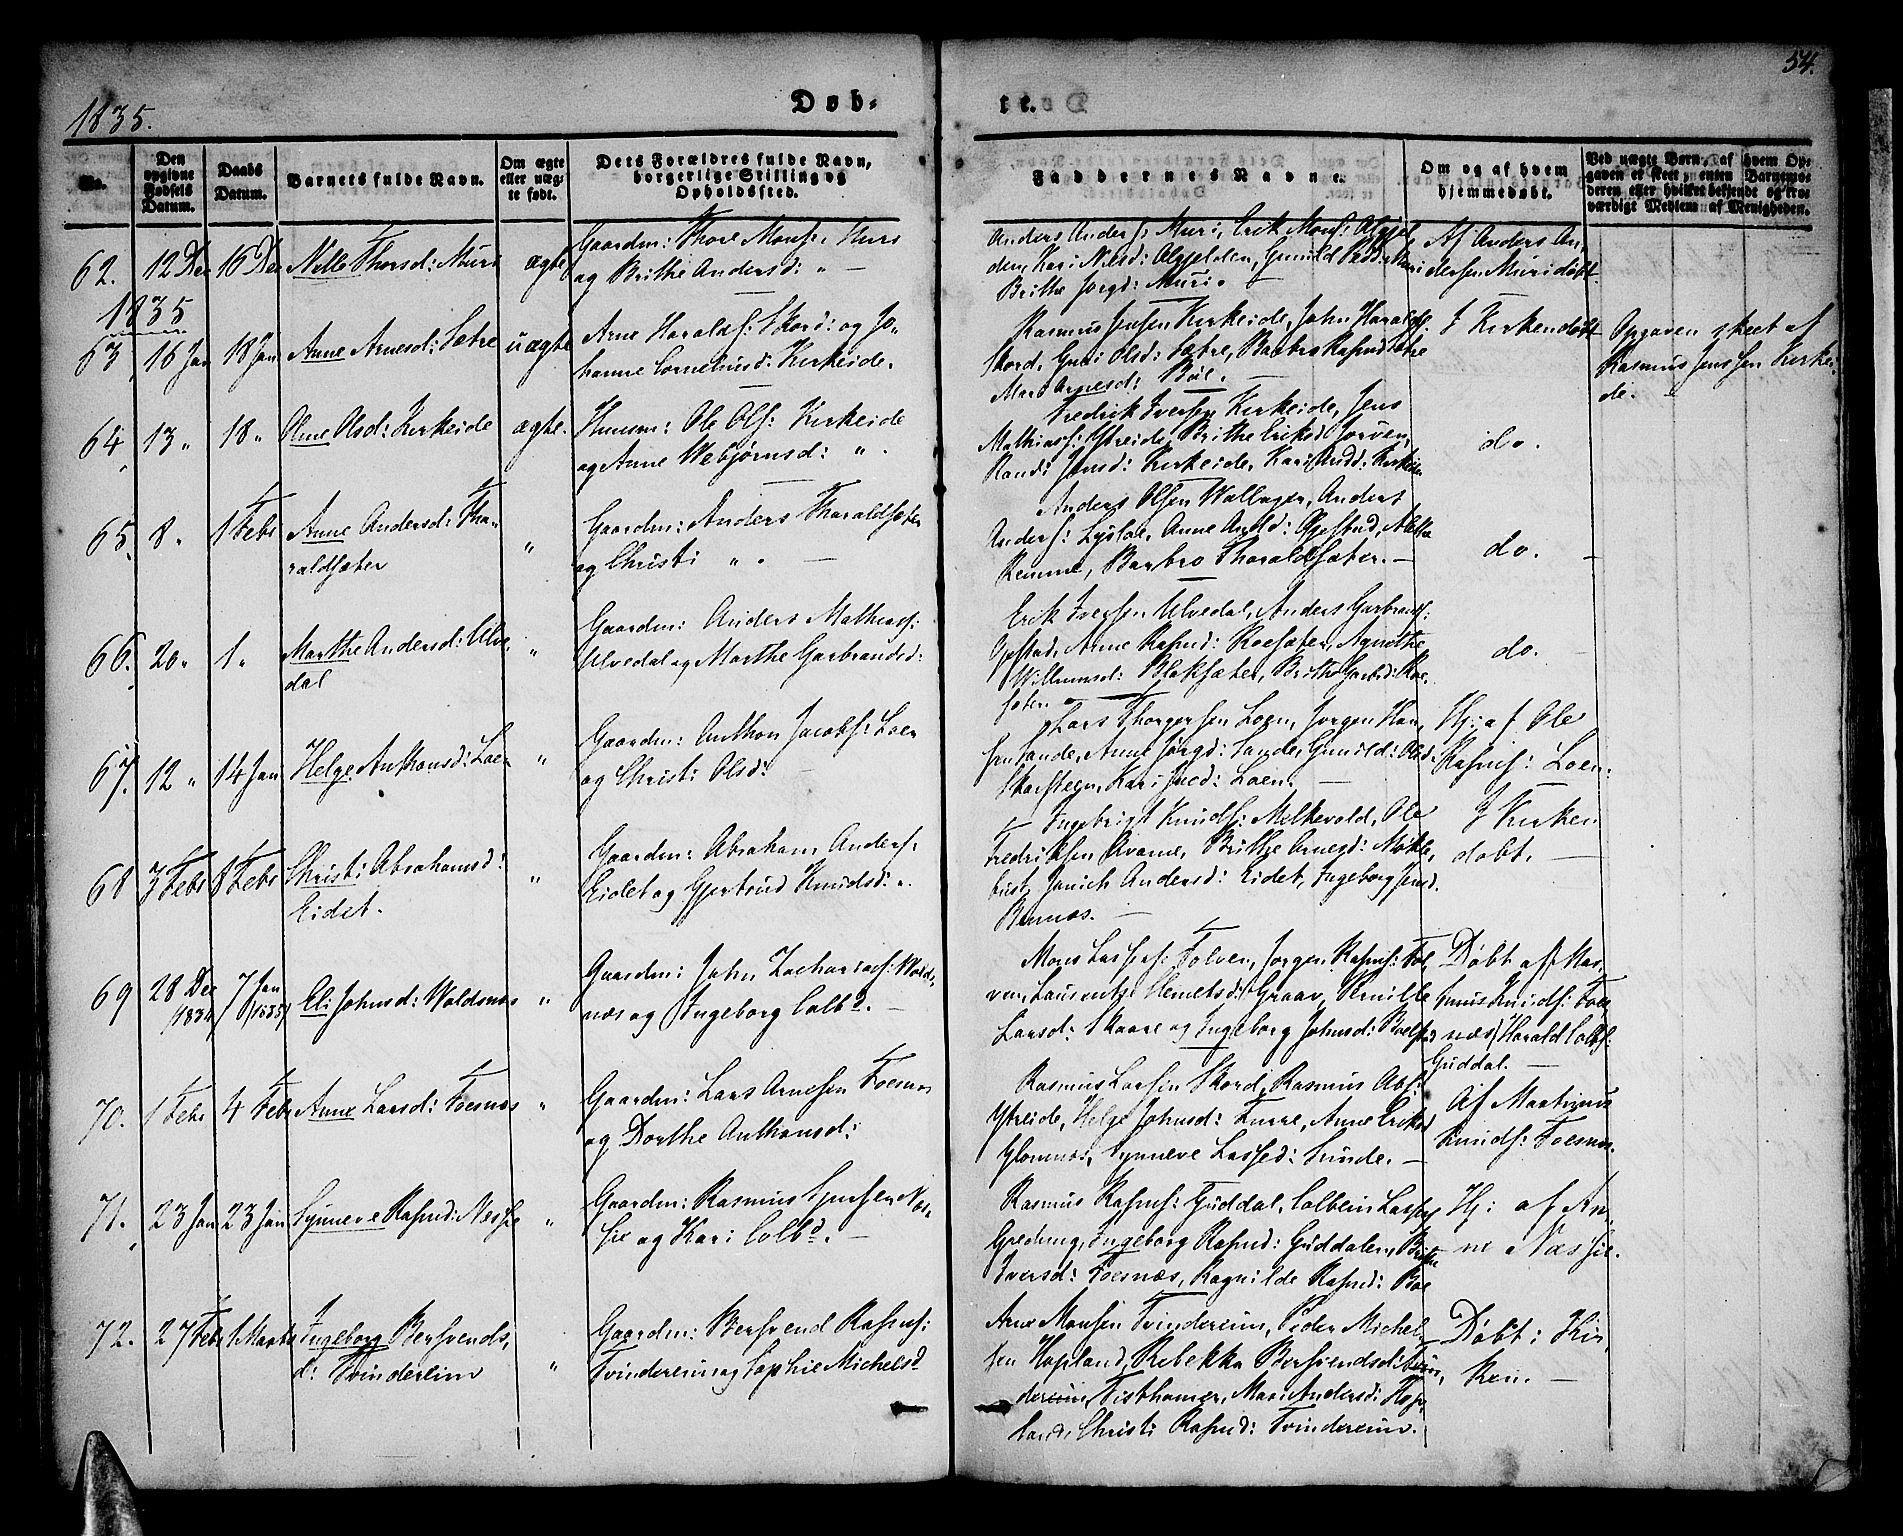 54.
1835.
Døb-
te.
No.
Den opgivne Fødsels Datum.
Daabs Datum.
Barnets fulde Navn.
Om ægte eller uægte født.
Dets Forældres fulde Navn, borgerlige Stilling og Opholdssted.
Faddernes Navne.
Om og af hvem hjemmedøbt.
Ved uægte Børn, af hvem Opgaven er skeet, enten Barnemoderen eller hvilket bekjendt og troværdigt Medlem af Menigheden.
62. 12 Dec 16 Dec Nille Thorsd: Muri ægte
Gaardm: Thore Monss: Muri
og Brithe Andersd: „ —
Anders Anderss: Muri, Erik Monss:
den, Kari Nilsd: Gunild
Brithe Jorgd: Muri.
Af Anders An-
dersen Muri døbt
1835
63 16 Jan 18 Jan Anne Arnesd: Sætre uægte
Arne Haralds: Skord: og Jo-
hanne Corneliusd: Kirkeide.
Rasmus Jensen Kirkeide, John Haralds:
Skord, Guri Olsd: Sætre, Barbro Rasmd: Sætre
Mari Arnesd: Böe.
I Kirken døbt
Opgaven skeet af
Rasmus Jenssen Kirkei-
de.
64 13 „ 18 „ Olsd: Kirkeide ægte.
Huusm: Ole Olss: Kirkeide
og Anne Webjørnsd: „ .
Fredrik Iversen Kirkeide, Jens
Mathiass: Ytreide, Brithe Eriksd:
Rand: Jensd: Kirkeide, Kari Kirkeide
do.
65. 8 „ 1 Febr Anne Andersd: Tha- „
raldsæter
Gaardm: Anders Tharaldsæter
og Christi „ „ —
Anders Olsen Anders
Anderss: Anne
Remme, Barbro Tharaldsæter. —
do. —
66. 20 „ 1 „ Marthe Andersd: Ulve- „
dal
Gaardm: Anders Mathiass:
Ulvedal og Marthe Garbrandsd:
Erik Iversen Ulvedal, Anders Garbrands:
Opstad, Anne Rasmd: Roesæter, Agnethe
Willumsd: Blaksæter, Brithe Garbd: Roe-
sæter.
do.
67. 12 „ 14 Jan Helge Anthonsd: Loen „
Gaardm: Anthon Jacobs: Loen
og Christi Olsd: —
Lars Thorgersen Loen, Jorgen Han-
sen Sande, Anne Jorgd: Sande, Gunild: Olsd:
Kari Loen. —
Hj: af Ole
Rasmss: Loen.
68 3 Febr 8 Febr Christi Abrahamsd: „
Eidet.
Gaardm: Abraham Anderss:
Eidet og Gjertrud Knudsd: „
Ingebrigt Knuds: Melkevold, Ole
Fredriksen Avane, Brithe Arnesd: Mykle-
bust, Janich Andersd: Eidet, Ingeborg Jensd:
—
I Kirken
døbt. —
69 28 Dec (1834) 7 Jan (1835) Eli Johnsd: Waldsnæs „
Gaardm: John Zachariass: Walds-
næs og Ingeborg Colbd. —
Mons Lasses: Folven, Jorgen Rasmss: Fol-
ven, Hemetsd: Graav, Pernille
Larsd: Skaare og Ingeborg Johnsd:
Døbt af Ras-
mus Knuds: Foes-
næs (Harald Colbs:
Guddal. —
70. 1 Febr 4 Febr Anne Larsd: Foesnæs „
Gaardm: Lars Arnesen Foesnæs
og Dorthe Anthonsd:
Rasmus Larsen Skord, Rasmus
Ytreide, Helge Johnsd: Furre, Anne Eriksd
Glomnæs, Synneve Lassed: Sunde. —
Af Martinus
Knuds: Foesnæs.
71. 23 Jan 23 Jan Synneve Rasmd: Nessie „
Gaardm: Rasmus Nes-
sie og Kari Colbd. —
Rasmus Rasmss: Guddal, Colbein Lasses:
Greding, Ingeborg Rasmd: Guddalen, Brithe
Iversd: Foesnæs, Ragnilde Rasmd: Böe
Hj: af An-
ne Næssie.
72. 27 Febr 1 Marts Ingeborg Bersvends- „
d: Tvindereim
Gaardm: Bersvend Rasmss:
Tvindereim og Sophie Michelsd
Arne Monsen Tvindereim, Peder Michel-
sen Hopland, Rebekka Bersvendsd: Tvin-
dereim, Mari Andersd: Hop-
land, Christi Rasmd: Tvindereim.
Døbt i Kir-
ken. —